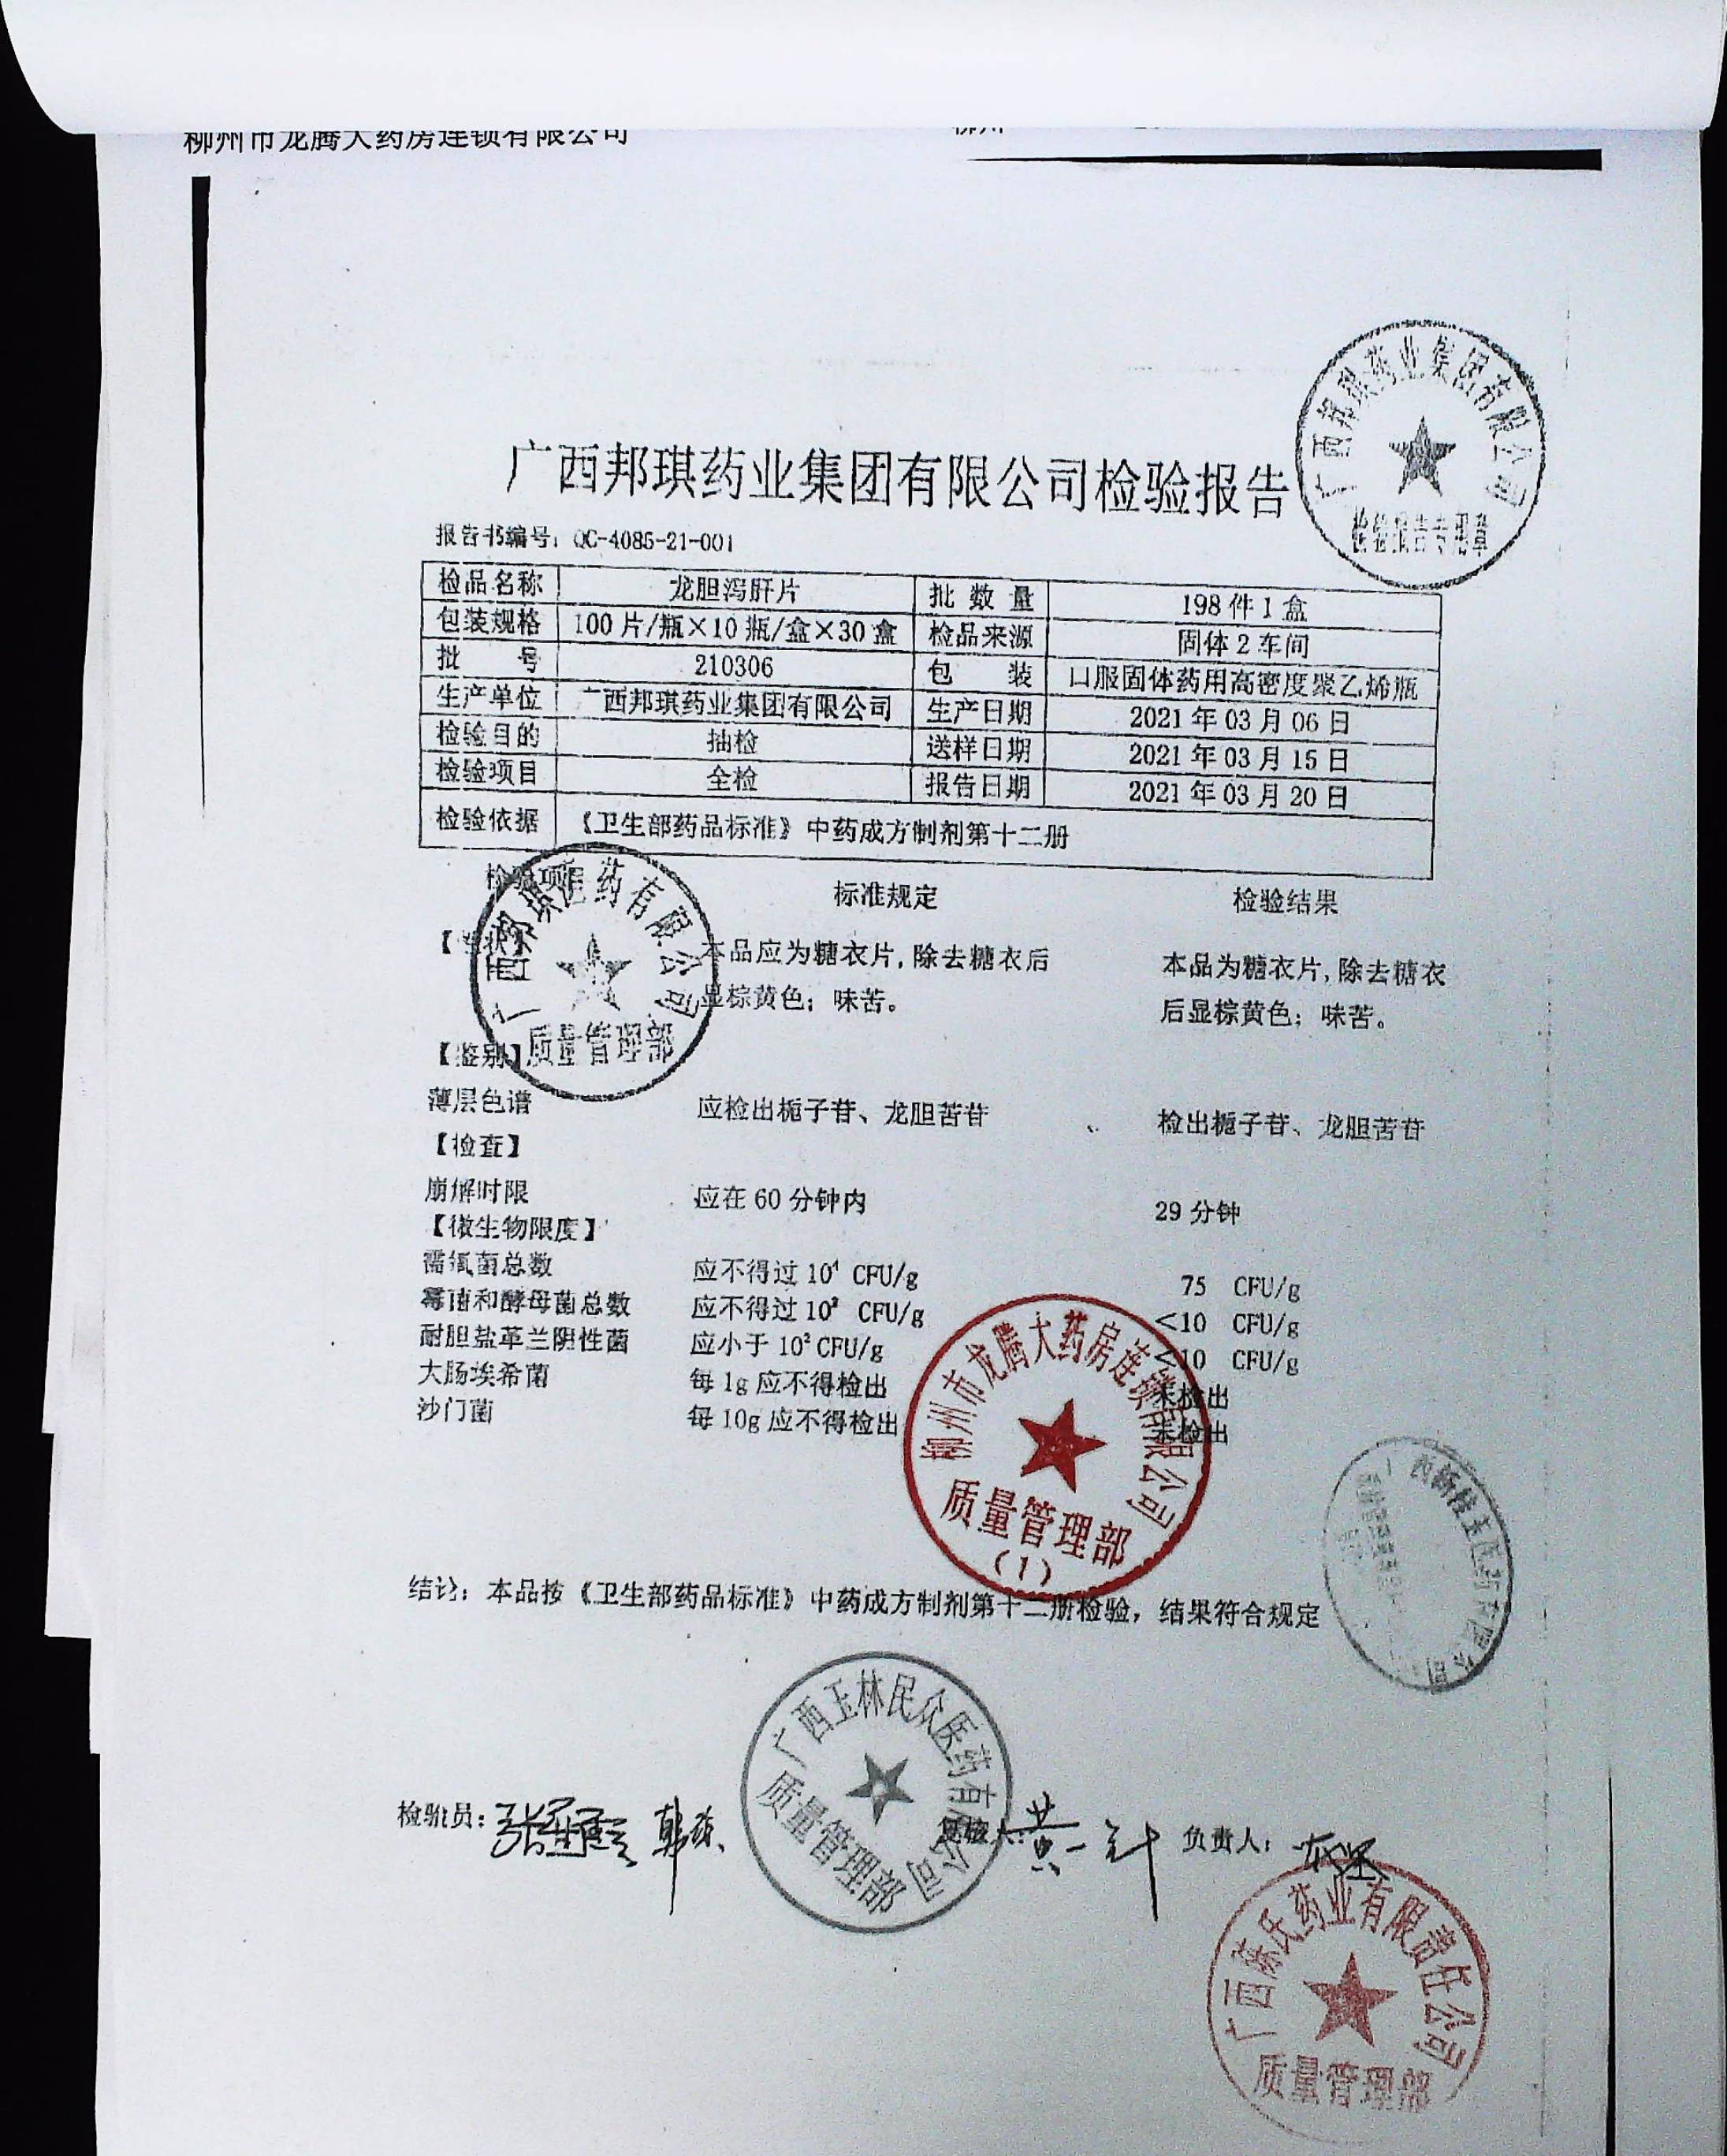 柳州市龙腾大药房连锁有限公司
柳州
广西邦琪药业集团有限公司检验报告
广西邦琪药业集团有限公司
检验报告专用章
报告书编号：QC-4085-21-001
检品名称 龙胆泻肝片 批 数 量 198 件 1 盒
包装规格 100 片/瓶×10 瓶/盒×30 盒 检品来源 固体 2 车间
批 号 210306 包 装 口服固体药用高密度聚乙烯瓶
生产单位 广西邦琪药业集团有限公司 生产日期 2021 年 03 月 06 日
检验目的 抽检 送样日期 2021 年 03 月 15 日
检验项目 全检 报告日期 2021 年 03 月 20 日
检验依据 《卫生部药品标准》中药成方制剂第十二册
检验项目 标准规定 检验结果
【性状】 本品应为糖衣片，除去糖衣后 本品为糖衣片，除去糖衣
显棕黄色；味苦。 后显棕黄色；味苦。
广西邦琪医药有限公司
质量管理部
【鉴别】
薄层色谱 应检出栀子苷、龙胆苦苷 检出栀子苷、龙胆苦苷
【检查】
崩解时限 应在 60 分钟内 29 分钟
【微生物限度】
需氧菌总数 应不得过 10⁴ CFU/g 75 CFU/g
霉菌和酵母菌总数 应不得过 10² CFU/g <10 CFU/g
耐胆盐革兰阴性菌 应小于 10² CFU/g <10 CFU/g
大肠埃希菌 每 1g 应不得检出 未检出
沙门菌 每 10g 应不得检出 未检出
柳州市龙腾大药房连锁有限公司
质量管理部
（1）
结论：本品按《卫生部药品标准》中药成方制剂第十二册检验，结果符合规定
广西玉林民众医药有限公司
质量管理部
检验员： 复核人： 黄 负责人：
广西陈氏药业有限责任公司
质量管理部